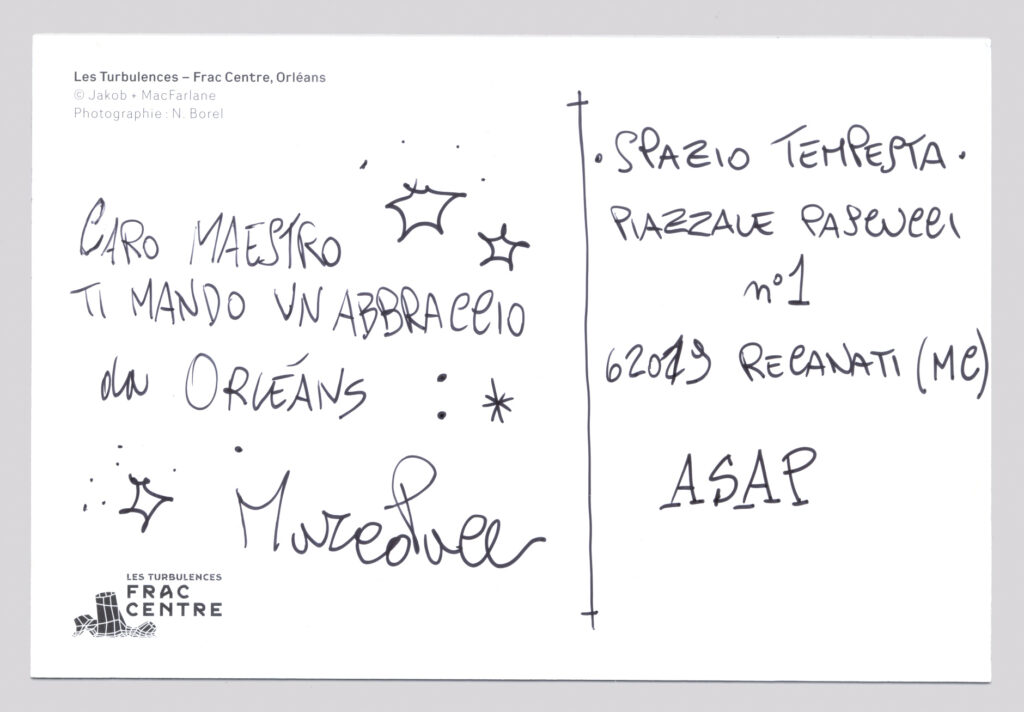 Les Turbulences – Frac Centre, Orléans
© Jakob + MacFarlane
Photographie : N. Borel
CARO MAESTRO
TI MANDO UN ABBRACCIO
da ORLÉANS :*
LES TURBULENCES
FRAC
CENTRE
• SPAZIO TEMPESTA •
PIAZZALE PASCUCCI
n° 1
62019 RECANATI (MC)
ASAP